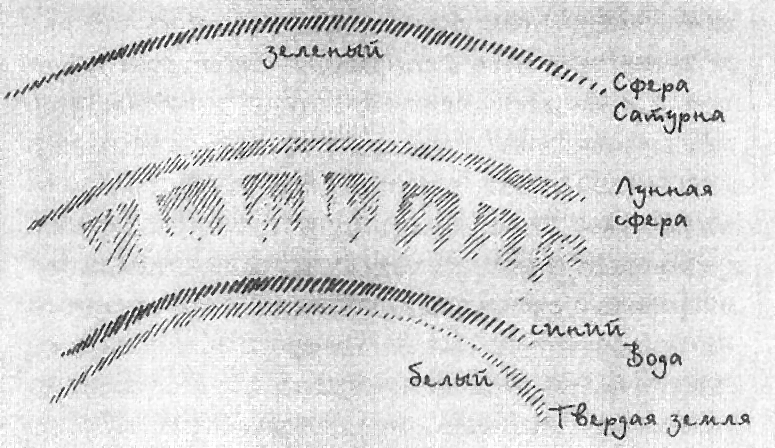 зеленый
Сфера
Сатурна
Лунная
сфера
синий
Вода
белый
Твердая земля